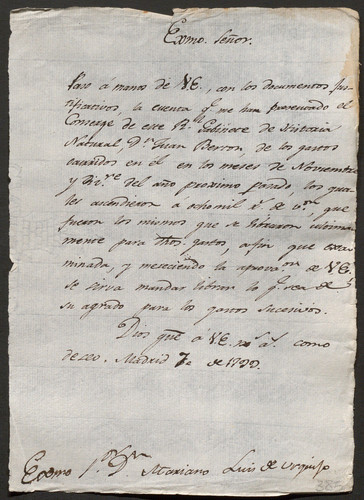 Exmo. Señor.
Paso á manos de VE., con los documentos jus-
tificativos, la cuenta q.e me han presentado el
Conserge de este R.l Gabinete de Historia
Natural, D.n Juan de los gastos
causados en él en los meses de Noviembre
y Di.re del año proximo pasado, los qua-
les ascendieron a ocho mil r.s de v.on que
fueron los mismos que se libraron ultima-
mente para dhos. gastos, a fin que exa-
minada, y mereciendo la aprov.on de VE.
se sirva mandar librar lo q.e sea de
su agrado para los gastos sucesivos.
Dios gue. á VE. m.s a.s como
deseo. Madrid 7 de 1799.
Exmo S.r D.n Mariano Luis de Urquijo